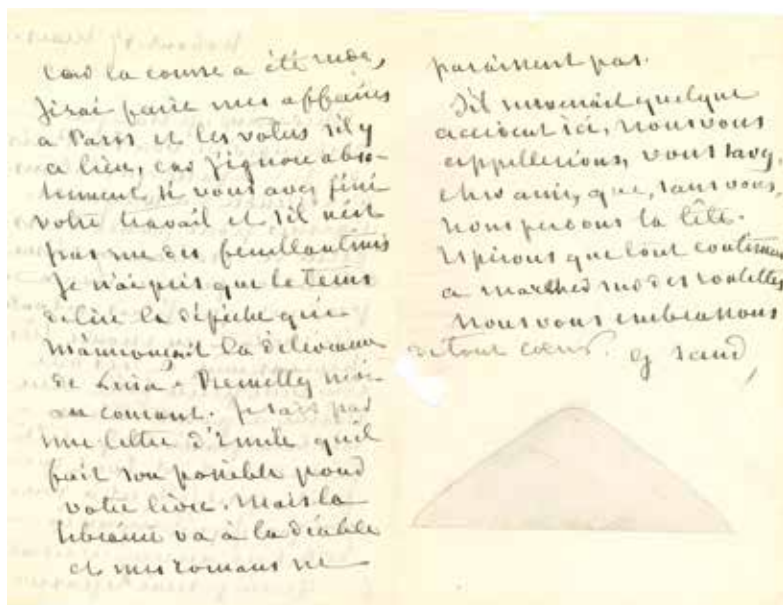 car la course a été rude,
J'irai faire mes affaires
a Paris et les votres s'il y
a lieu, car j'ignore abso-
lument si vous avez fini
votre travail et s'il n'est
pas rue des feuillantines
Je n'ai pris que le tems
de lire la dépêche qui
m'annonçait la délivrance
de Lina. Remettez moi
au courant. Je sais par
une lettre d'Emile qu'il
fait son possible pour
votre livre. Mais la
librairie va à la diable
et mes romans ne
paraissent pas.
S'il survenait quelque
accident ici, nous vous
appellerions, vous savez,
cher ami, que, sans vous,
nous perdons la tête.
Espérons que tout continuera
a marcher sur des roulettes
Nous vous embrassons
de tout cœur. G Sand